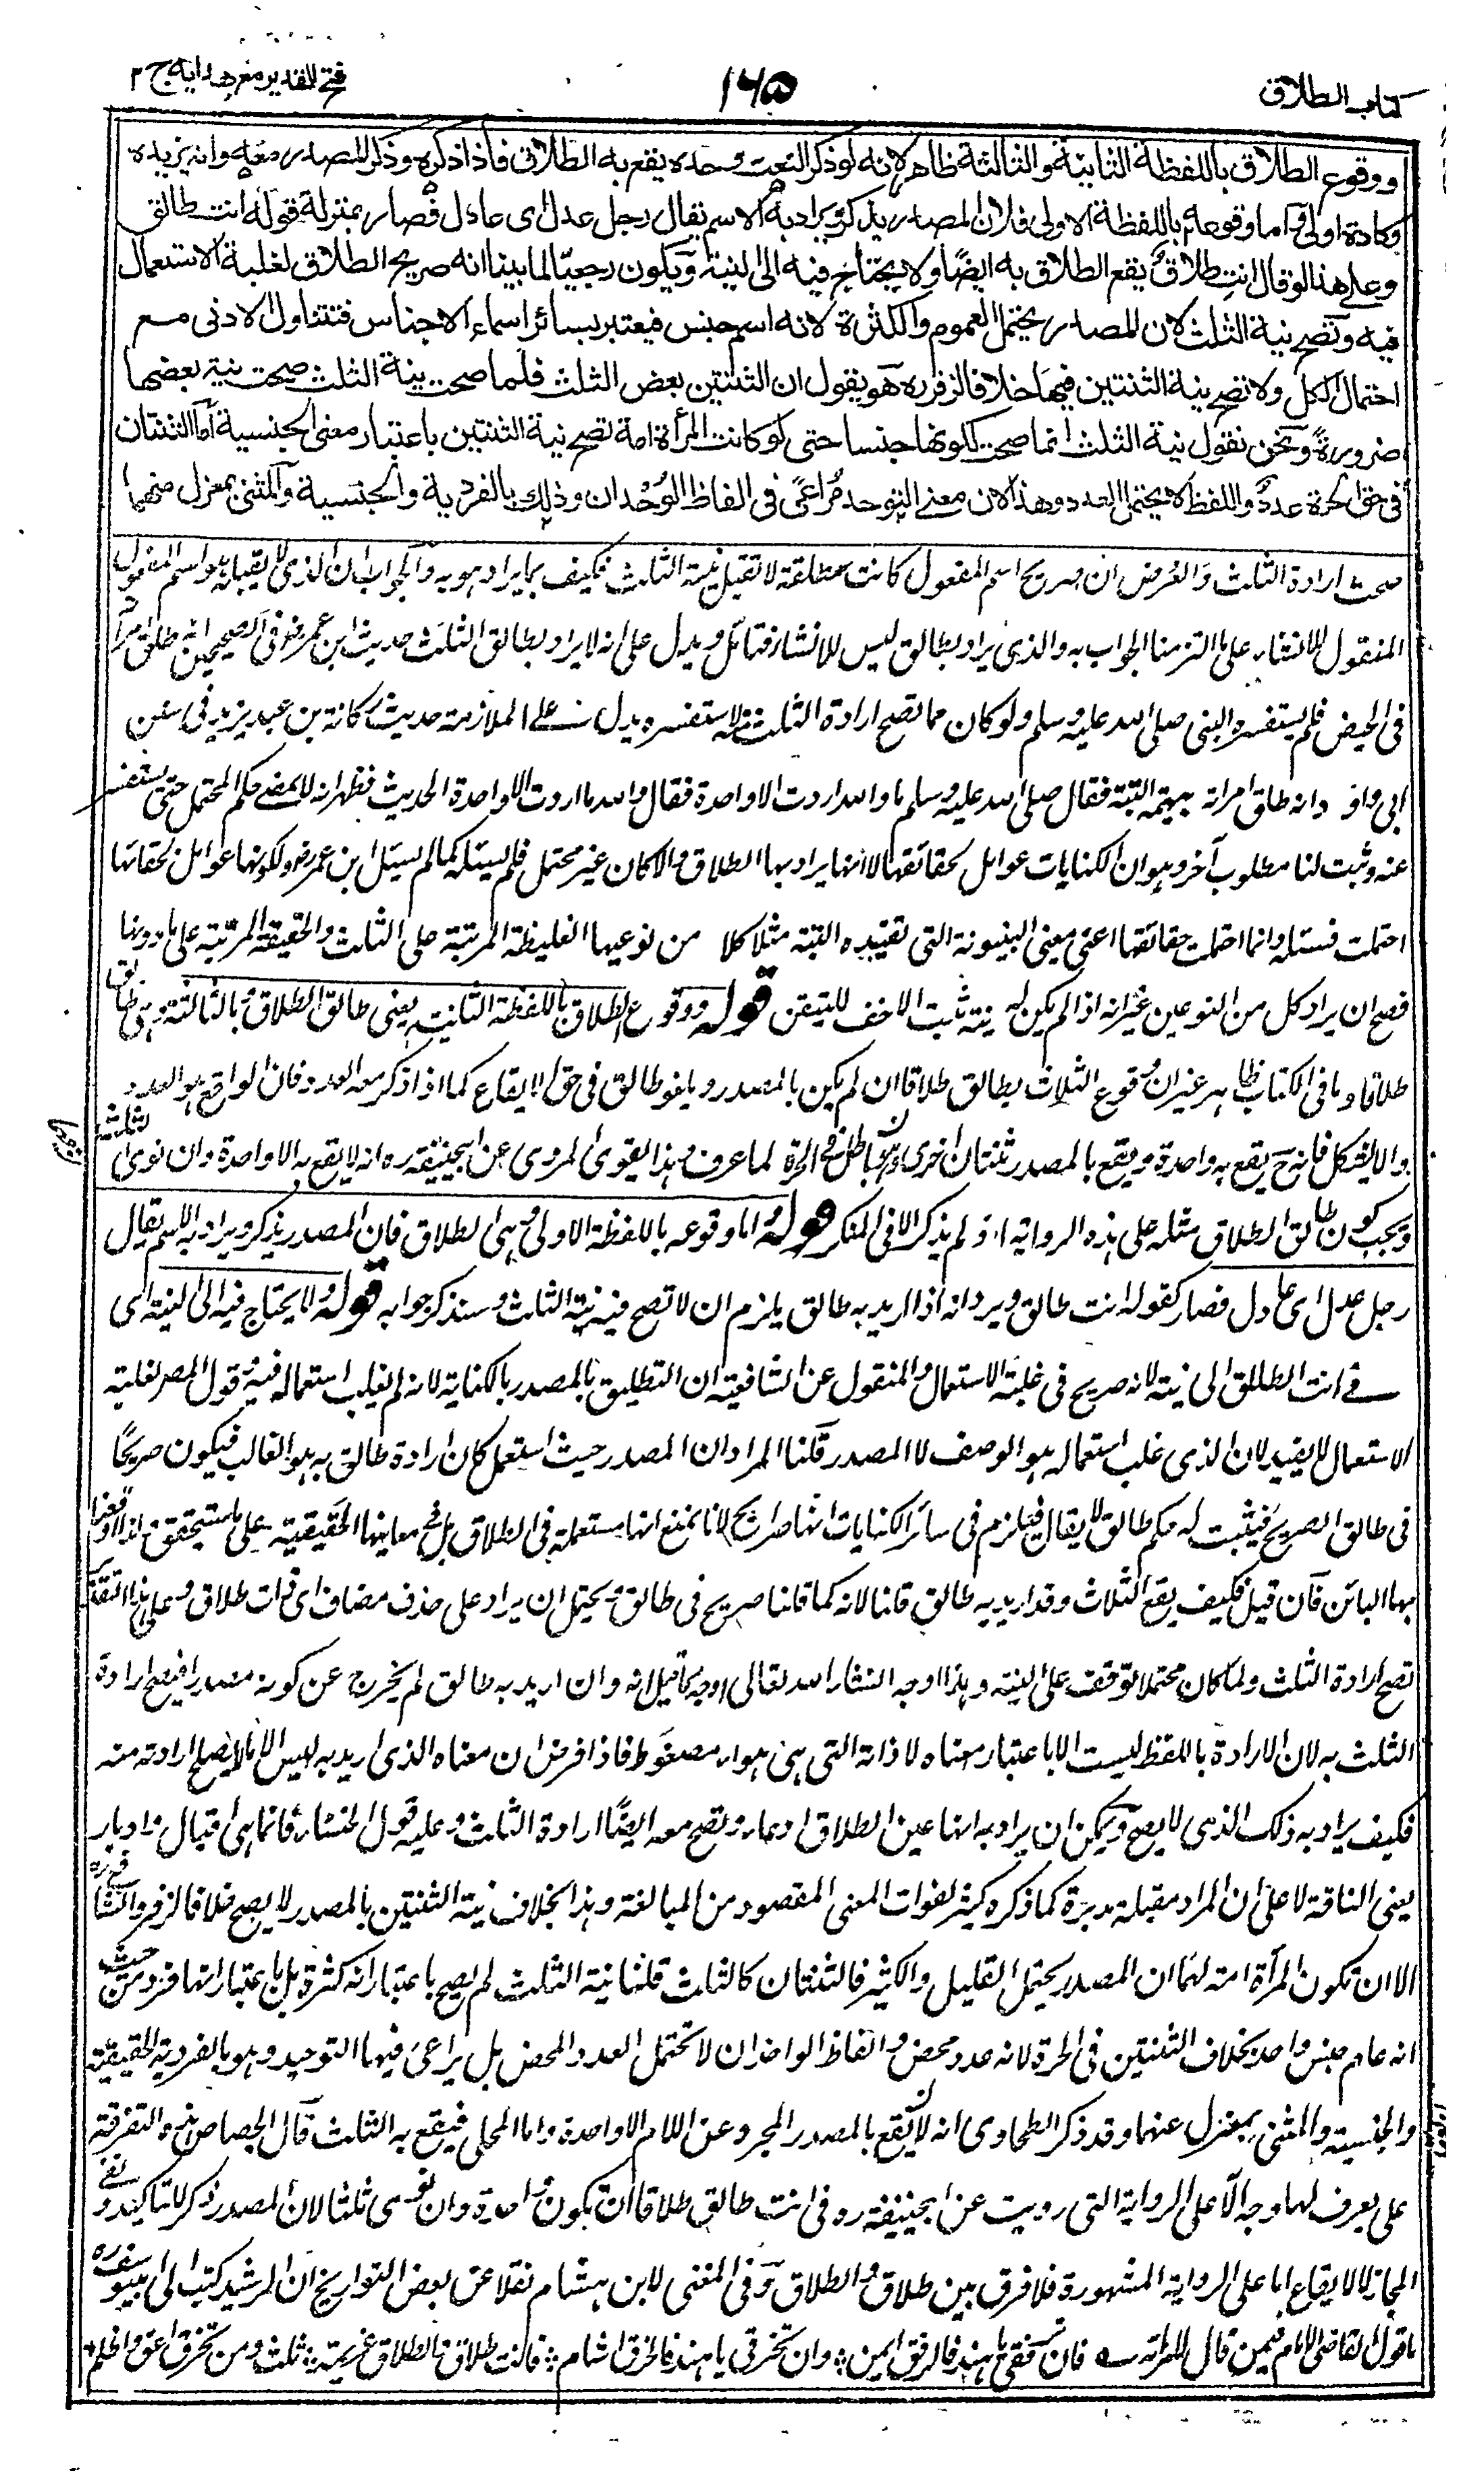 كتاب الطلاق
١٦٥
فتح القدير مع هداية ج ٢
ووقوع الطلاق باللفظة الثانية والثالثة ظاهر لانه لو ذكر النعت وحده يقع به الطلاق فاذا ذكره وذكر المصدر معه وانه يزيده
وكادة اولى واما وقوعه باللفظة الاولى فلان المصدر يذكر ويراد به الاسم يقال رجل عدل اى عادل فصار بمنزلة قوله انت طالق
وعلى هذا لو قال انت طلاق يقع الطلاق به ايضا ولا يحتاج فيه الى النية ويكون رجعيا لما بينا انه صريح الطلاق لغلبة الاستعمال
فيه وتصح نية الثلث لان المصدر يحتمل العموم والكثرة لانه اسم جنس فيعتبر بسائر اسماء الاجناس فتتناول الادنى مع
احتمال الكل ولا تصح نية الثنتين فيها خلافا لزفر ره هو يقول ان الثنتين بعض الثلث فلما صحت نية الثلث صحت نية بعضها
ضرورة ونحن نقول نية الثلث انما صحت لكونها جنسا حتى لو كانت المرأة امة تصح نية الثنتين باعتبار معنى الجنسية اما الثنتان
فى حق الحرة عدد واللفظ لا يحتمل العدد وهذا لان معنى التوحد مراعى فى الفاظ الوحدان وذلك بالفردية والجنسية والمثنى بمعزل منهما
صحت ارادة الثلث والغرض ان صريح اسم المفعول كانت مطلقة لا تقبل نية الثلث فكيف بما يراد هو به والجواب ان الذى لا يقبله هو اسم المفعول
المنقول للانشاء على ما التزمنا الجواب به والذى يراد بطالق ليس للانشاء فتأمل ويدل على انه لا يراد بطالق الثلث حديث ابن عمر رض فى الصحيحين انه طلق امرأته
فى الحيض فلم يستفسره النبى صلى الله عليه وسلم ولو كان مما تصح ارادة الثلث منه لاستفسره يدل على الملازمة حديث ركانة بن عبد يزيد فى سنن
ابى داود انه طلق امراته البتة فقال صلى الله عليه وسلم ما والله اردت الا واحدة فقال والله ما اردت الا واحدة الحديث فظهر انه لا يمضى حكم المحتمل حتى يستفسر
عنه وثبت لنا مطلوب آخر وهو ان الكنايات عوامل بحقائقها لا انها يراد بها الطلاق والا كان غير محتمل فلم يسئله كما لم يسئل ابن عمر رض ولكونها عوامل بحقائقها
احتملت فسئله وانما احتملت حقائقها اعنى معنى البينونة التى تفيده البتة مثلا كلا من نوعيها الغليظة المرتبة على الثلث والحقيقة المرتبة على ما دونها
فصح ان يراد كل من النوعين غير انه اذا لم يكن له نية ثبت الاخف للتيقن قوله ووقوع الطلاق باللفظة الثانية يعنى طالق الطلاق وبالثالثة وهى طالق
طلاقا وما فى الكتاب ظاهر غير ان وقوع الثلاث بطالق طلاقا ان لم يكن بالمصدر ويلغو طالق فى حق الايقاع كما اذا ذكر معه العدد فان الواقع هو العدد
والا يشكل فانه ح يقع به واحدة ويقع بالمصدر ثنتان اخرى وهو باطل فى الحرة لما عرف وهذا يقوى المروى عن ابيحنيفة ره انه لا يقع به الا واحدة وان نوى الثلث
ويجب كون طالق الطلاق مثله على هذه الرواية اذ لم يذكر الا فى المنكر قوله واما وقوعه باللفظة الاولى وهى الطلاق فان المصدر يذكر ويراد به الاسم يقال
رجل عدل اى عادل فصار كقوله انت طالق ويرد انه اذا اريد به طالق يلزم ان لا تصح فيه نية الثلث وسنذكر جوابه قوله ولا يحتاج فيه الى النية اى
فى انت الطلاق الى نية لانه صريح فى غلبة الاستعمال والمنقول عن الشافعية ان التطليق بالمصدر بالكناية لانه لم يغلب استعماله فيه وقول المص لغلبة
الاستعمال لا يفيد لان الذى غلب استعماله هو الوصف لا المصدر قلنا المراد ان المصدر حيث استعمل كان ارادة طالق به هو الغالب فيكون صريحا
فى طالق الصريح فيثبت له حكم طالق لا يقال فيلزم فى سائر الكنايات انها صرائح لانا نمنع انها مستعملة فى الطلاق بل فى معانيها الحقيقية على ما ستحقق ولذا اوقعنا
بها البائن فان قيل فكيف يقع الثلاث وقد اريد به طالق قلنا لانه كما قلنا صريح فى طالق ويحتمل ان يراد على حذف مضاف اى ذات طلاق وعلى هذا التقدير
تصح ارادة الثلث ولما كان محتملا توقف على النية وهذا اوجه انشاء الله تعالى اوجه مما قيل انه وان اريد به طالق لم يخرج عن كونه مصدرا فيصح ارادة
الثلث به لان الارادة باللفظ ليست الا باعتبار معناه لا ذاته التى هى هواء مضغوط فاذا فرض ان معناه الذى اريد به ليس الا ما لا يصلح ارادته منه
فكيف يراد به ذلك الذى لا يصح ويمكن ان يراد به انها عين الطلاق ادعاء وتصح معه ايضا ارادة الثلث وعليه قول الخنساء فانما هى اقبال وادبار
يعنى الناقة لا على ان المراد مقبلة مدبرة كما ذكره كثير لفوات المعنى المقصود من المبالغة وهذا بخلاف نية الثنتين بالمصدر لا يصح خلافا لزفر والشافعى ره
الا ان تكون المرأة امة لهما ان المصدر يحتمل القليل والكثير فالثنتان كالثلث قلنا نية الثلث لم تصح باعتبار انه كثرة بل باعتبار انها فرد من حيث
انه عام جنس واحد بخلاف الثنتين فى الحرة لانه عدد محض والفاظ الواحدان لا تحتمل العدد المحض بل يراعى فيها التوحيد وهو بالفردية الحقيقية
والجنسية والمثنى بمعزل عنهما وقد ذكر الطحاوى انه لا يقع بالمصدر المجرد عن اللام الا واحدة واما المحلى فيقع به الثلث قال الجصاص هذه التفرقة
على يعرف لها وجه الا على الرواية التى رويت عن ابيحنيفة ره فى انت طالق طلاقا ان تكون واحدة وان نوى ثلثا لان المصدر ذكر للتاكيد ونفى
المجاز لا لايقاع اما على الرواية المشهورة فلا فرق بين طلاق والطلاق وفى المغنى لابن هشام نقلا عن بعض التواريخ ان الرشيد كتب الى ابى يوسف ره
ما قول القاضى الامام فيمن قال لامراته فان ترفقى يا هند فالرفق ايمن ؛ وان تخرقى يا هند فالخرق اشام ؛ فانت طلاق والطلاق عزيمة ؛ ثلث ومن تخرق اعق واظلم